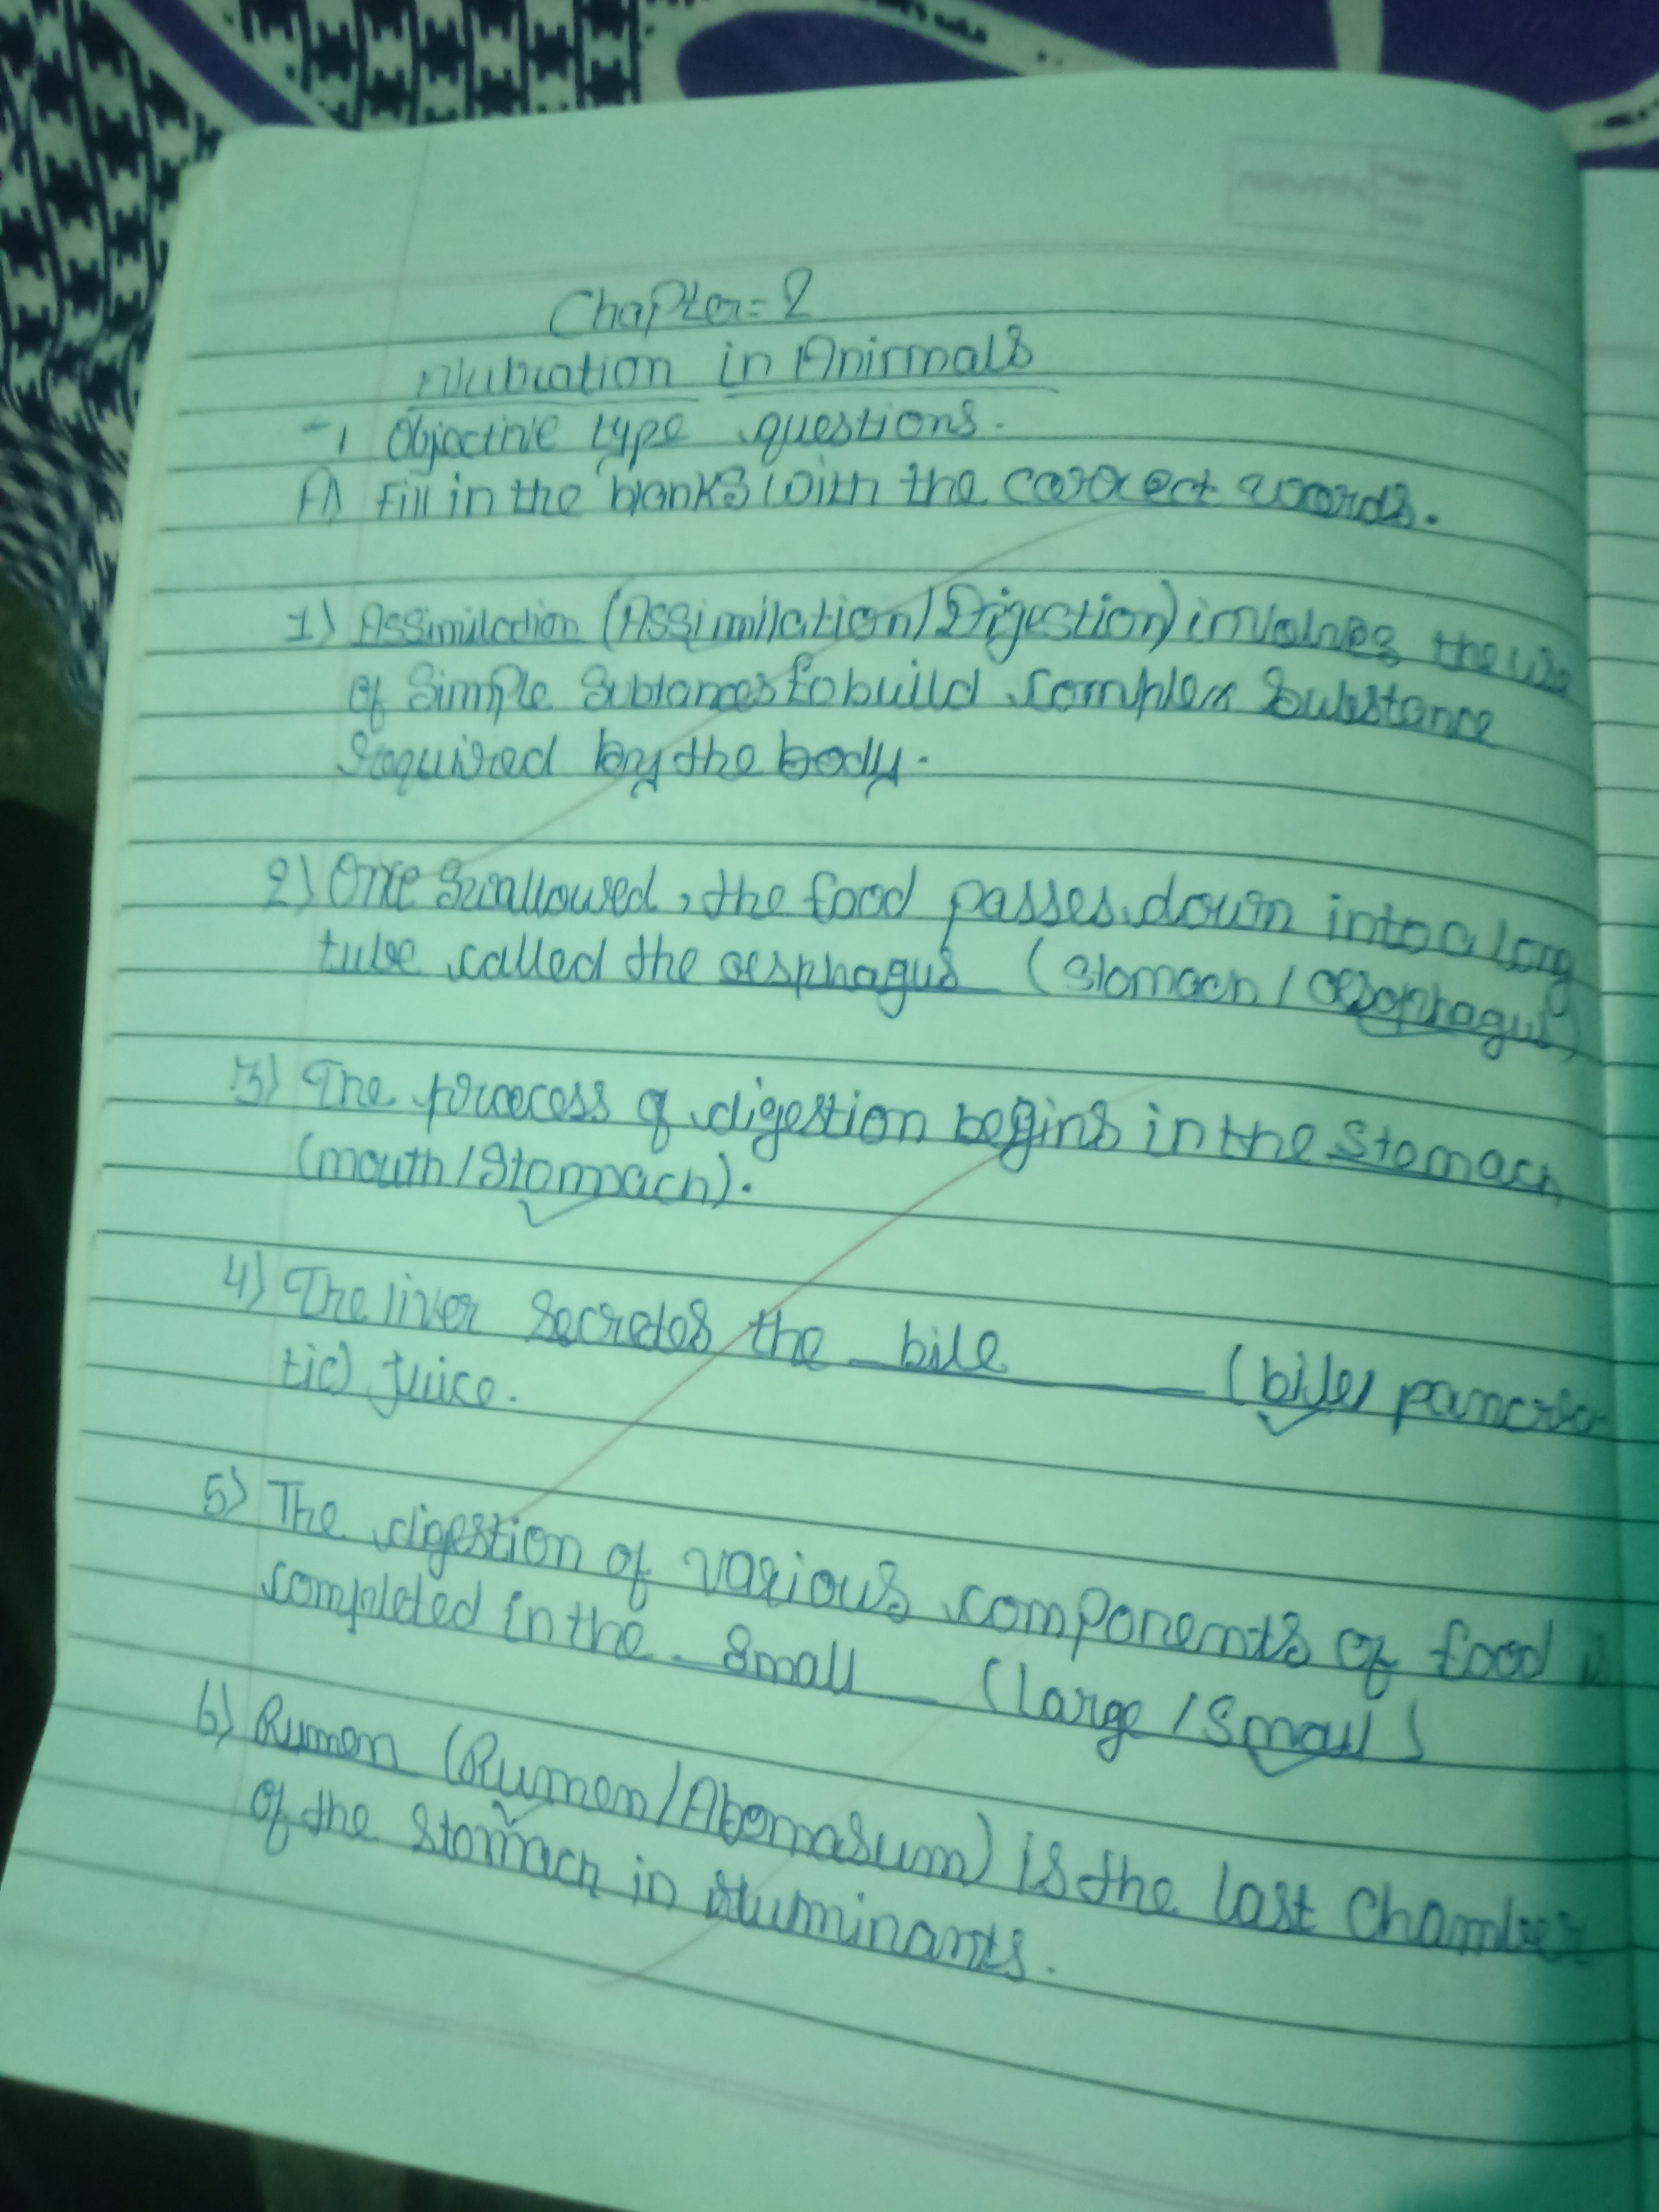 Chapter = 2
Nutration in Animals
1 Objective type questions.
A) Fill in the blanks with the correct words.
1) Assimilation (Assimilation/Digestion) involves the use
of Simple Subtances to build complex Substance
required by the body.
2) Once Swallowed, the food passes down into a long
tube called the oesphagus (Stomach / oesophagus)
3) The process of digestion begins in the Stomach
(mouth/Stomach).
4) The liver secretes the bile (bile/ pancrea
tic) juice.
5) The digestion of various components of food is
completed in the Small (large / Small)
6) Rumen (Rumen/Abomasum) is the last Chamber
of the Stomach in ruminants.